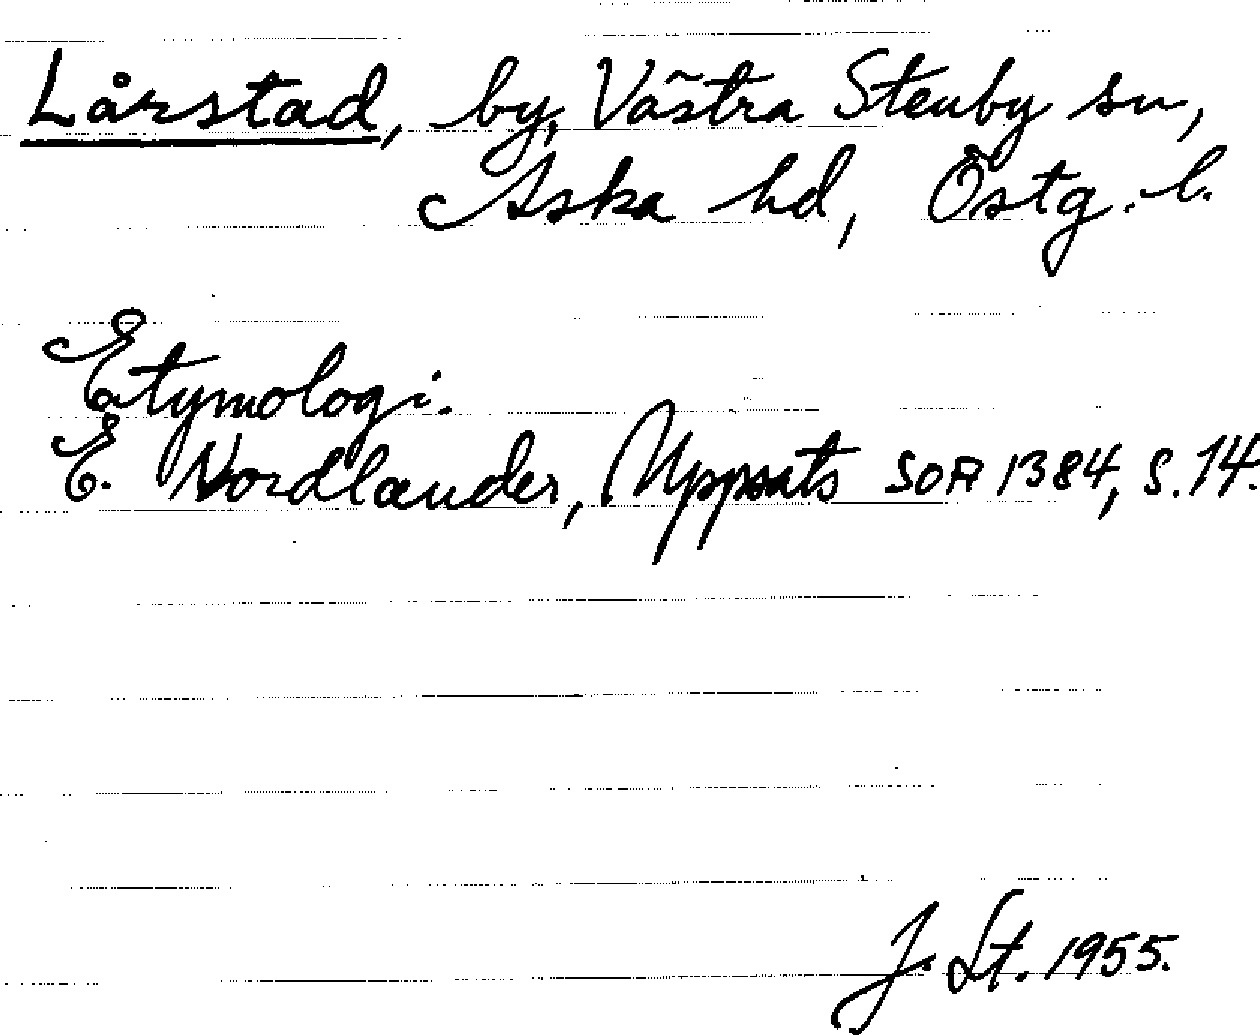 Lårstad, by, Västra Stenby sn,
Aska hd, Östg. l.
Etymologi.
E. Nordlander, Uppsats SOA 1384, s. 14.
J. St. 1955.